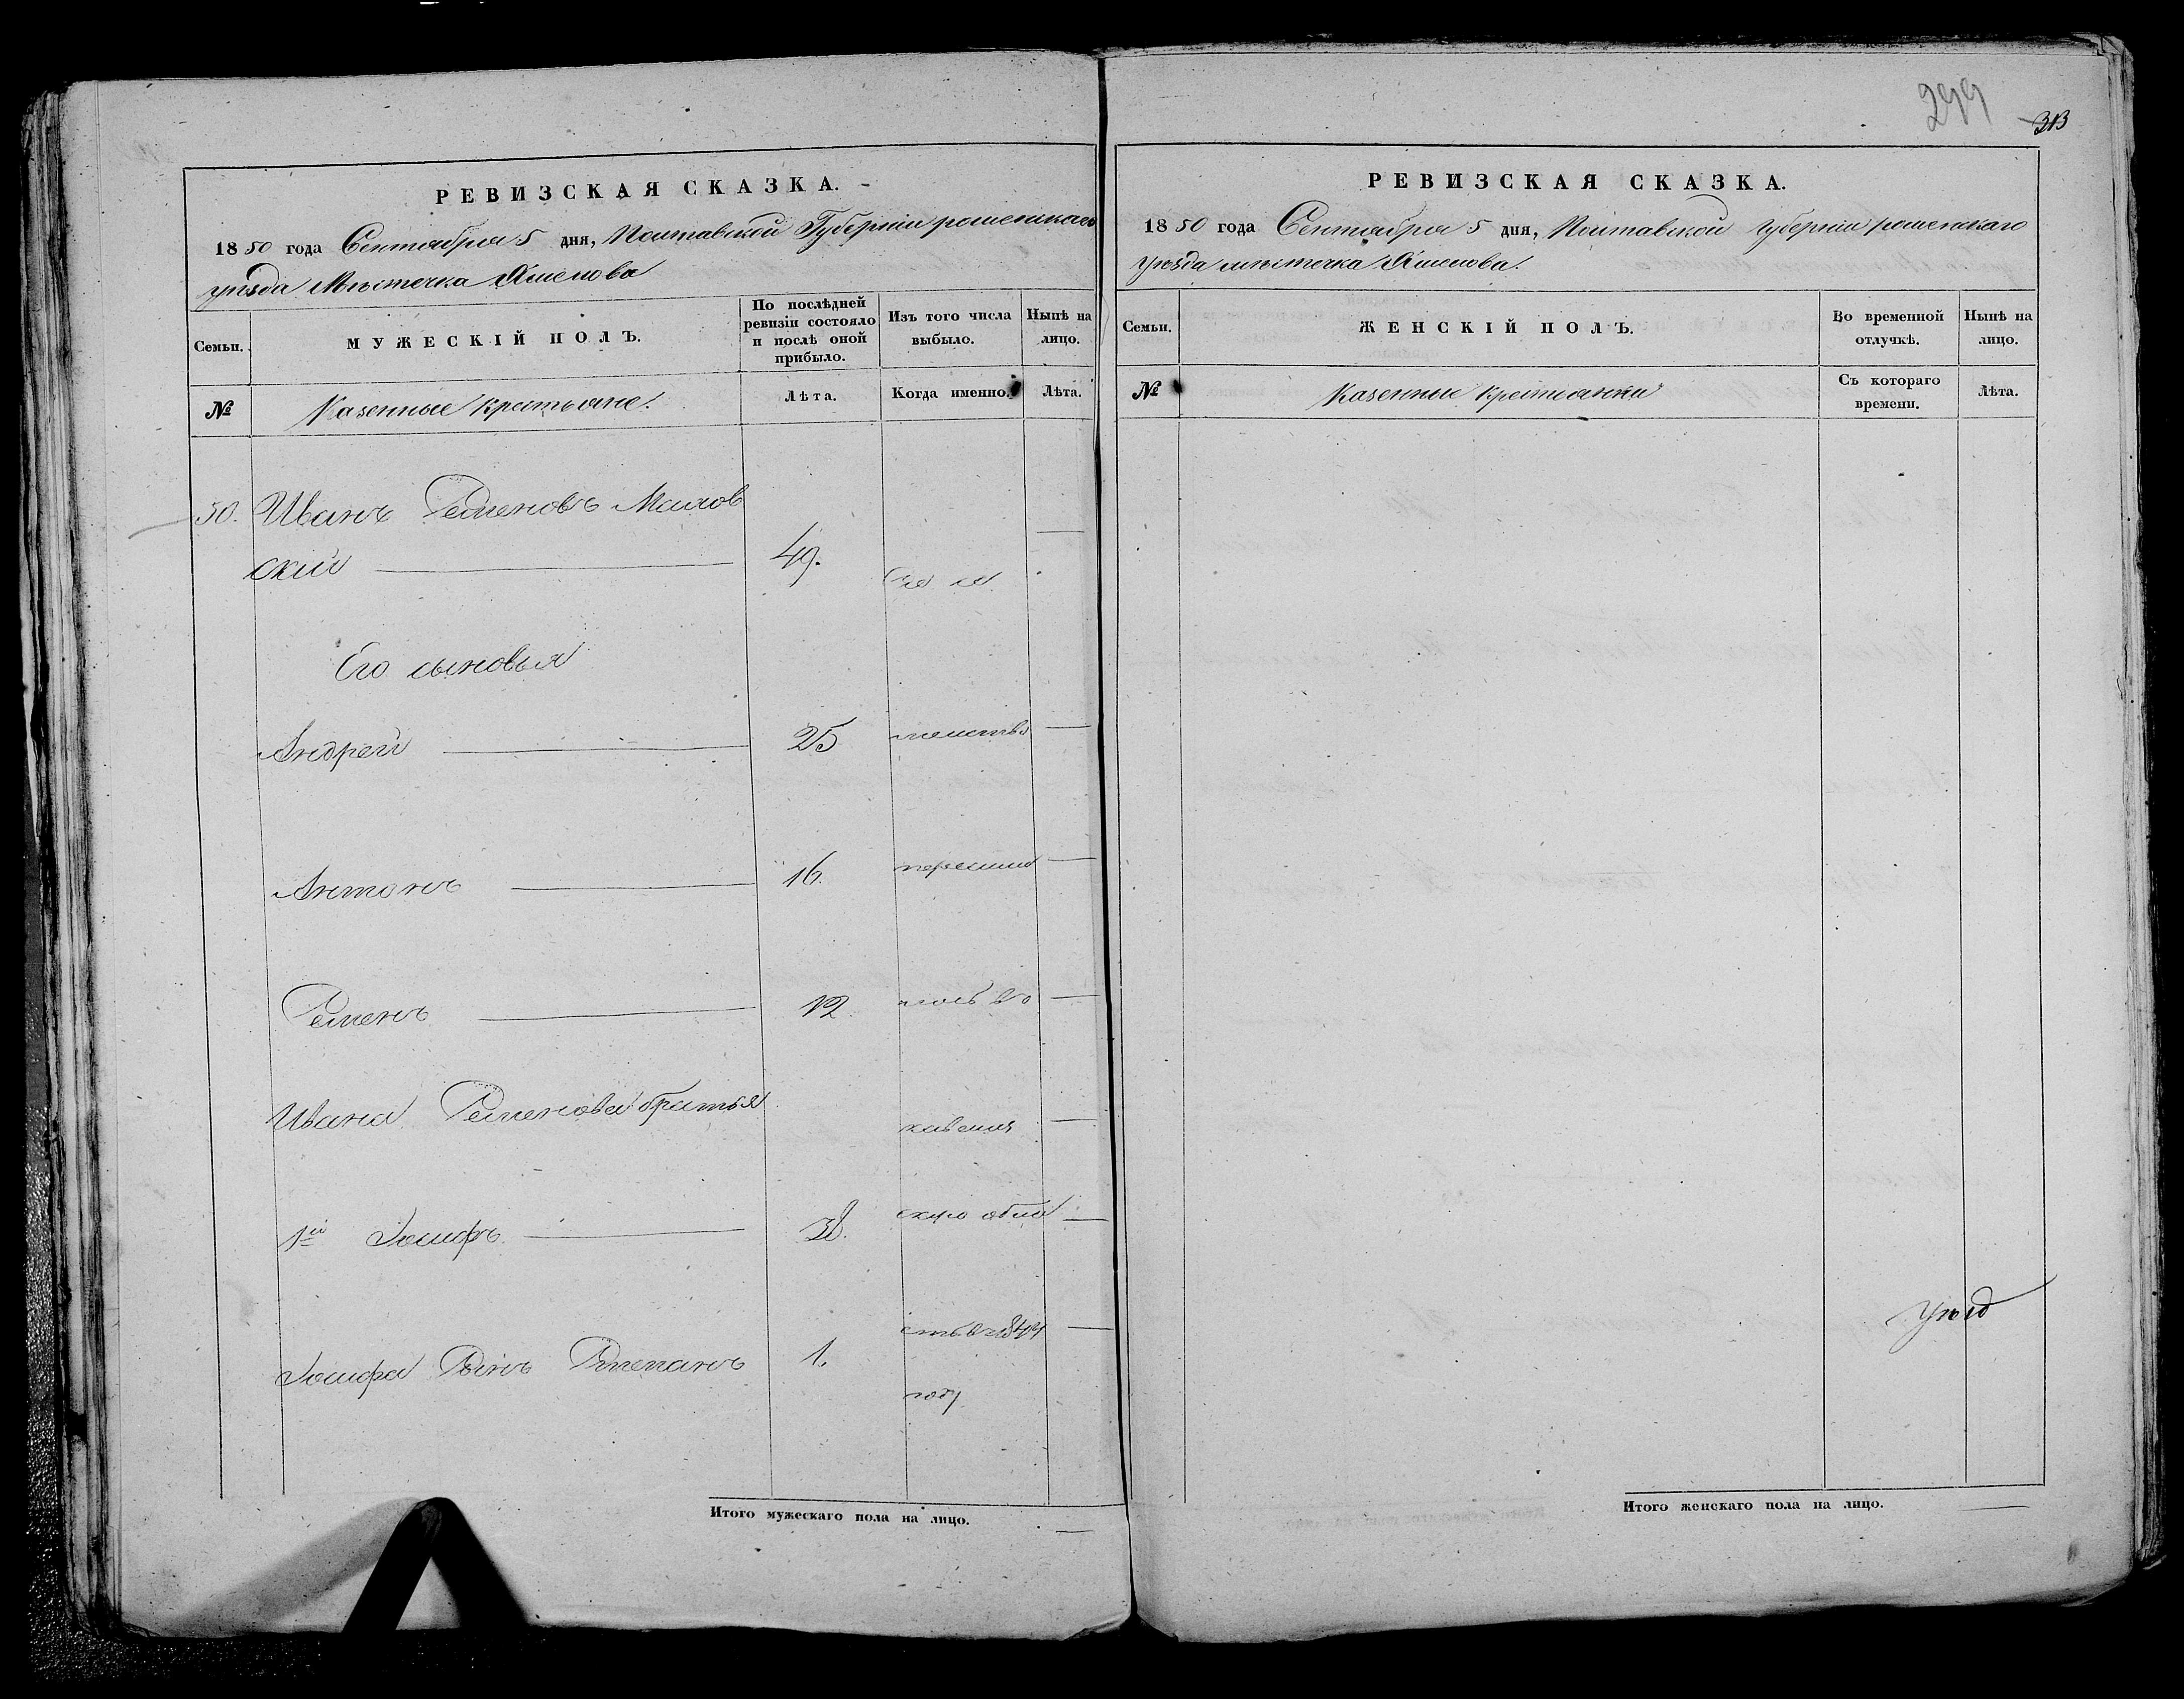 299
313
РЕВИЗСКАЯ СКАЗКА.
1850 года Сентября 5 дня, Полтавской Губерніи роменскаго
уѣзда Мѣстечка Смелова
Семьи.
МУЖЕСКІЙ ПОЛЪ.
По послѣдней ревизіи состояло и послѣ оной прибыло.
Изъ того числа выбыло.
Нынѣ на лицо.
№
Казенные крестьяне.
Лѣта.
Когда именно.
Лѣта.
50. Иванъ Семеновъ Малов
ский 49.
Сѣ сѣ
Его сыновья
Андрей 25 мействѣ
Антонъ 16. пересили
Семенъ 12
Ивана Семенова братья
кавказ
1й Іосифъ 38. скую обла
Іосифа Сынъ Степанъ 1. сть въ 1844
году
Итого мужескаго пола на лицо. —
РЕВИЗСКАЯ СКАЗКА.
1850 года Сентября 5 дня, Полтавской губерніи роменскаго
уѣзда мѣстечка Смелова.
Семьи.
ЖЕНСКІЙ ПОЛЪ.
Во временной отлучкѣ.
Нынѣ на лицо.
№
Казенные крестьянки
Съ котораго времени.
Лѣта.
Уѣзд
Итого женскаго пола на лицо. —